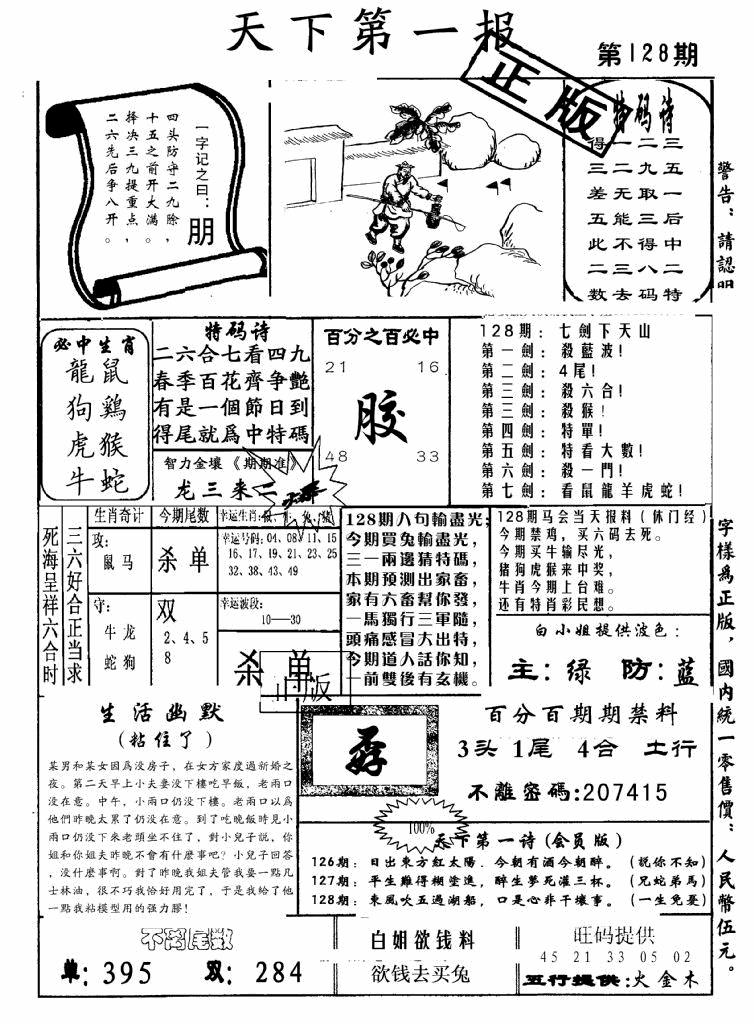 天下第一报
第128期
正版
一字记之曰：朋
四头防守二九除，
十五之前开大满。
择决三九提重点，
二六先后争八开。
特码诗
得一二三
三二九五
差无取一
五能三后
此不得中
二三八二
数去码特
警告：請認明
字樣爲正版，國内統一零售價：人民幣伍元。
必中生肖
龍鼠
狗鷄
虎猴
牛蛇
特码诗
二六合七看四九
春季百花齊争艷
有是一個節日到
得尾就爲中特碼
智力金壤《期期准》
龙三来二
百分之百必中
21 16
胶
48 33
128期：七劍下天山
第一劍：殺藍波！
第二劍：4尾！
第三劍：殺六合！
第三劍：殺猴！
第四劍：特單！
第五劍：特看大數！
第六劍：殺一門！
第七劍：看鼠龍羊虎蛇！
死海呈祥六合时
三六好合正当求
生肖奇计
攻：
鼠马
守：
牛龙
蛇狗
今期尾数
杀单
双
2、4、5
8
幸运生肖：
幸运号码：04、08、11、15
16、17、19、21、23、25
32、38、43、49
幸运波段：
10—30
杀单
正版
128期八句輸盡光；
今期買兔輸盡光，
三一兩邊猜特碼，
本期預測出家畜，
家有六畜幫你發，
一馬獨行三軍隨，
頭痛感冒大出特，
今期道人話你知，
一前雙後有玄機。
128期马会当天报料（休门经）
今期禁鸡，买六码去死。
今期买牛输尽光，
猪狗虎猴来中奖，
牛肖今期上台难。
还有特肖彩民想。
白小姐提供波色：
主：绿 防：蓝
生活幽默
（粘住了）
某男和某女因爲没房子，在女方家度過新婚之
夜。第二天早上小夫妻没下樓吃早飯，老兩口
没在意。中午，小兩口仍没下樓。老兩口以爲
他們昨晚太累了仍没在意。到了吃晚飯時見小
兩口仍没下來老頭坐不住了，對小兒子說，你
姐和你姐夫昨晚不會有什麽事吧？小兒子回答
，没什麽事啊。對了昨晚我姐夫管我要一點凡
士林油，很不巧我恰好用完了，于是我给了他
一點我粘模型用的强力膠！
百分百期期禁料
3头 1尾 4合 土行
不離密碼：207415
100%
天下第一诗（会员版）
126期：日出東方紅太陽．今朝有酒今朝醉。（説你不知）
127期：平生難得糊塗進，醉生夢死灌三杯。（兄蛇弟馬）
128期：東風吹五過湖船，口是心非干壞事。（一生免憂）
不离尾数
单：395 双：284
白姐欲钱料
欲钱去买兔
旺码提供
45 21 33 05 02
五行提供：火金木